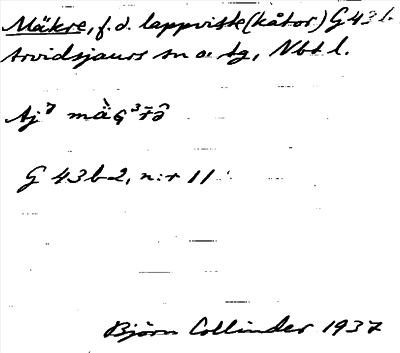 Mäkre, f.d. lappviste (kåtor) G 43 l.
Arvidsjaurs sn o. tg, Nbt l.
Aj⁷
G 43b2, n:r 11
Björn Collinder 1937